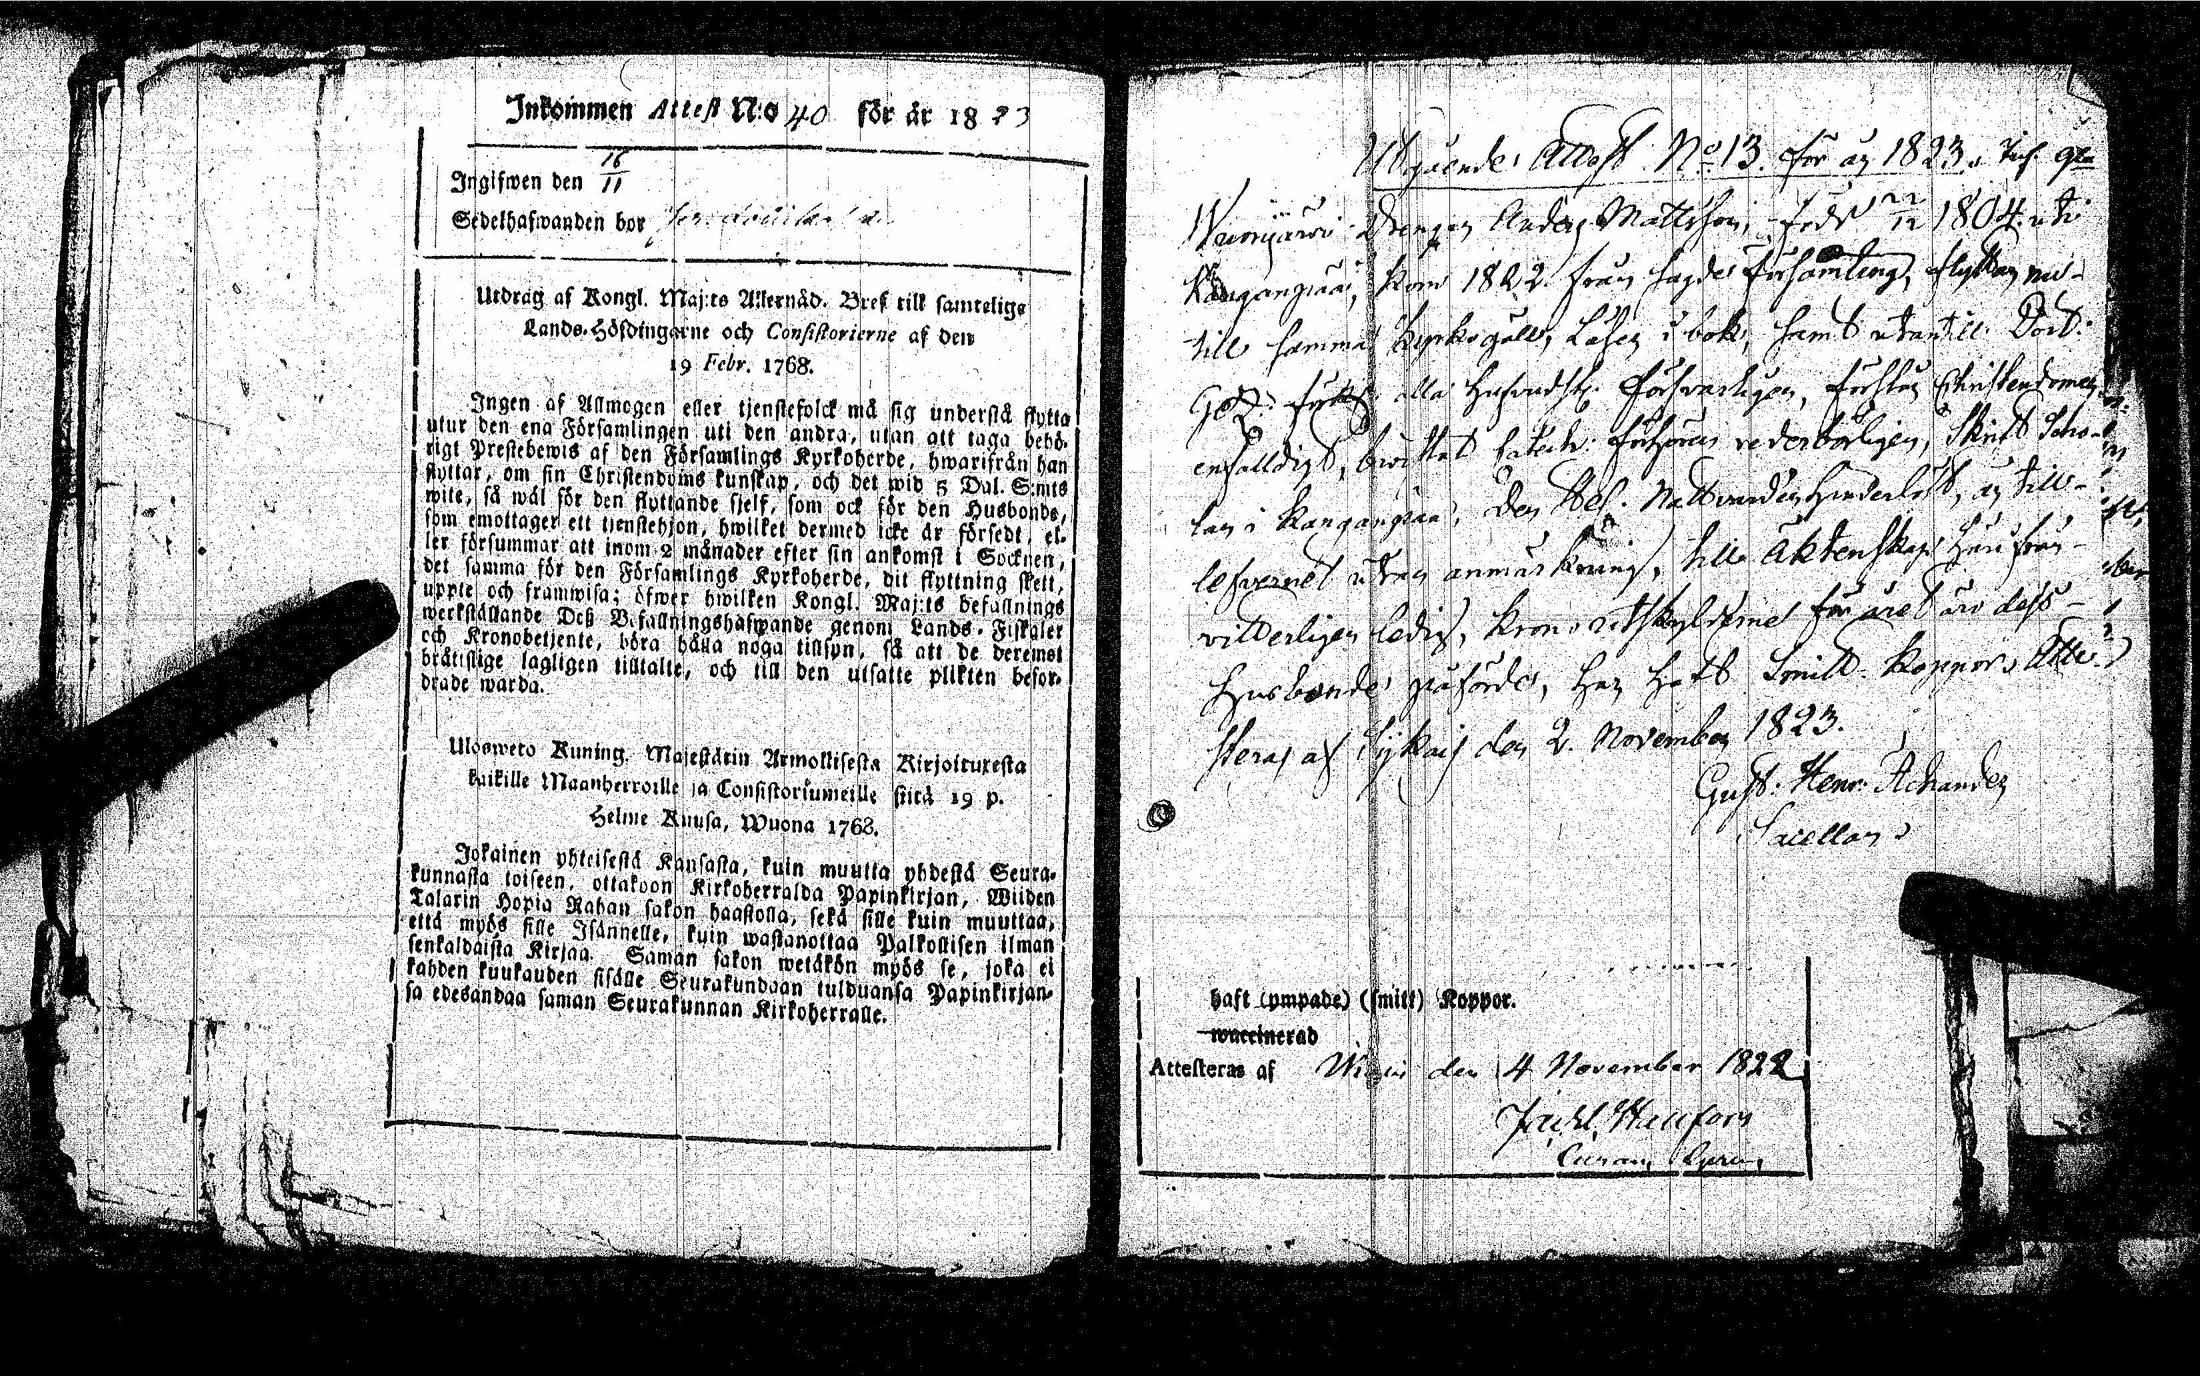 Inkommen Attest N:o 40 för år 1823
Ingifwen den 16/11
Sedelhafwanden bor
Utdrag af Kongl. Maj:ts Allernåd. Bref till samtelige
Lands-Höfdingarne och Consistorierne af den
19 Febr. 1768.
Ingen af Allmogen eller tjenstefolck må sig understå flytta
utur den ena Församlingen uti den andra, utan att taga behö-
rigt Prestebewis af den Församlings Kyrkoherde, hwarifrån han
flyttar, om sin Christendoms kunskap, och det wid 5 Dal. S:mts
wite, så wäl för den flyttande sjelf, som ock för den Husbonde,
som emottager ett tjenstehjon, hwilket dermed icke är försedt, el-
ler försummar att inom 2 månader efter sin ankomst i Socknen,
det samma för den Församlings Kyrkoherde, dit flyttning skett,
uppte och framwisa; öfwer hwilken Kongl. Maj:ts befallnings
werkställande Deß Befallningshafwande genom Lands-Fiskaler
och Kronobetjente, böra hålla noga tillsyn, så att de deremot
bråttslige lagligen tilltalte, och till den utsatte plikten befor-
drade warda.
Ulosweto Kuning. Majestätin Armollisesta Kirjoituxesta
kaikille Maanherroille ja Consistoriumeille siitä 19 p.
Helme Kuusa, Wuona 1768.
Jokainen yhteisestä Kansasta, kuin muutta yhdestä Seura-
kunnasta toiseen, ottakoon Kirkoherralda Papinkirjan, Wiiden
Talarin Hopia Rahan sakon haastolla, sekä sille kuin muuttaa,
että myös sille Isännelle, kuin wastanottaa Palkollisen ilman
senkaldaista Kirjaa. Saman sakon wetäkön myös se, joka ei
kahden kuukauden sisälle Seurakundaan tulduansa Papinkirjan-
sa edesandaa saman Seurakunnan Kirkoherralle.
Utgående Attest No 13. för år 1823.
Drengen Anders Mattsson, född 22/12 1804 uti
Kangangiäwi, kom 1822 från sagde församling, flyttar nu
till samma Kyrkogäll, Läser i bok, samt utantill
alla Hufvudst: försvarligen, förstår Christendomen
enfaldigt, bevistat Catech: förhören vederbörligen, Skrift Scho-
lan i Kangangiäwi, den Hel. Nattvarden hinderlöst, är till
lefvernet utan anmärkning, till Äktenskap härifrån
vitterligen ledig, kronoutskylderne för året äro dess
Husbonde påförde, har haft Smitt Koppor, Atte-
steras af den 2. November 1823.
Gust: Henr: Achander
Sacellan
haft (ympade) (smitt) Koppor.
waccinerad
Attesteras af den 4 November 1822